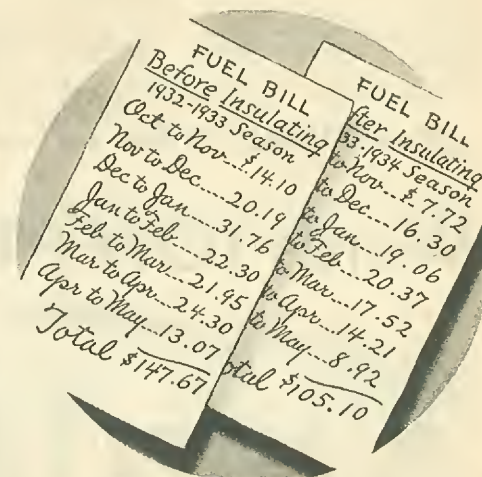 FUEL BILL
Before Insulating
1932-1933 Season
Oct to Nov...$14.10
Nov to Dec....20.19
Dec to Jan....31.76
Jan to Feb....22.30
Feb to Mar....21.95
Mar to Apr...24.30
Apr to May...13.07
Total $147.67
FUEL BILL
fter Insulating
33-1934 Season
to Nov...$7.72
to Dec....16.30
to Jan...19.06
to Feb...20.37
to Mar...17.52
to Apr...14.21
to May...8.92
otal $105.10